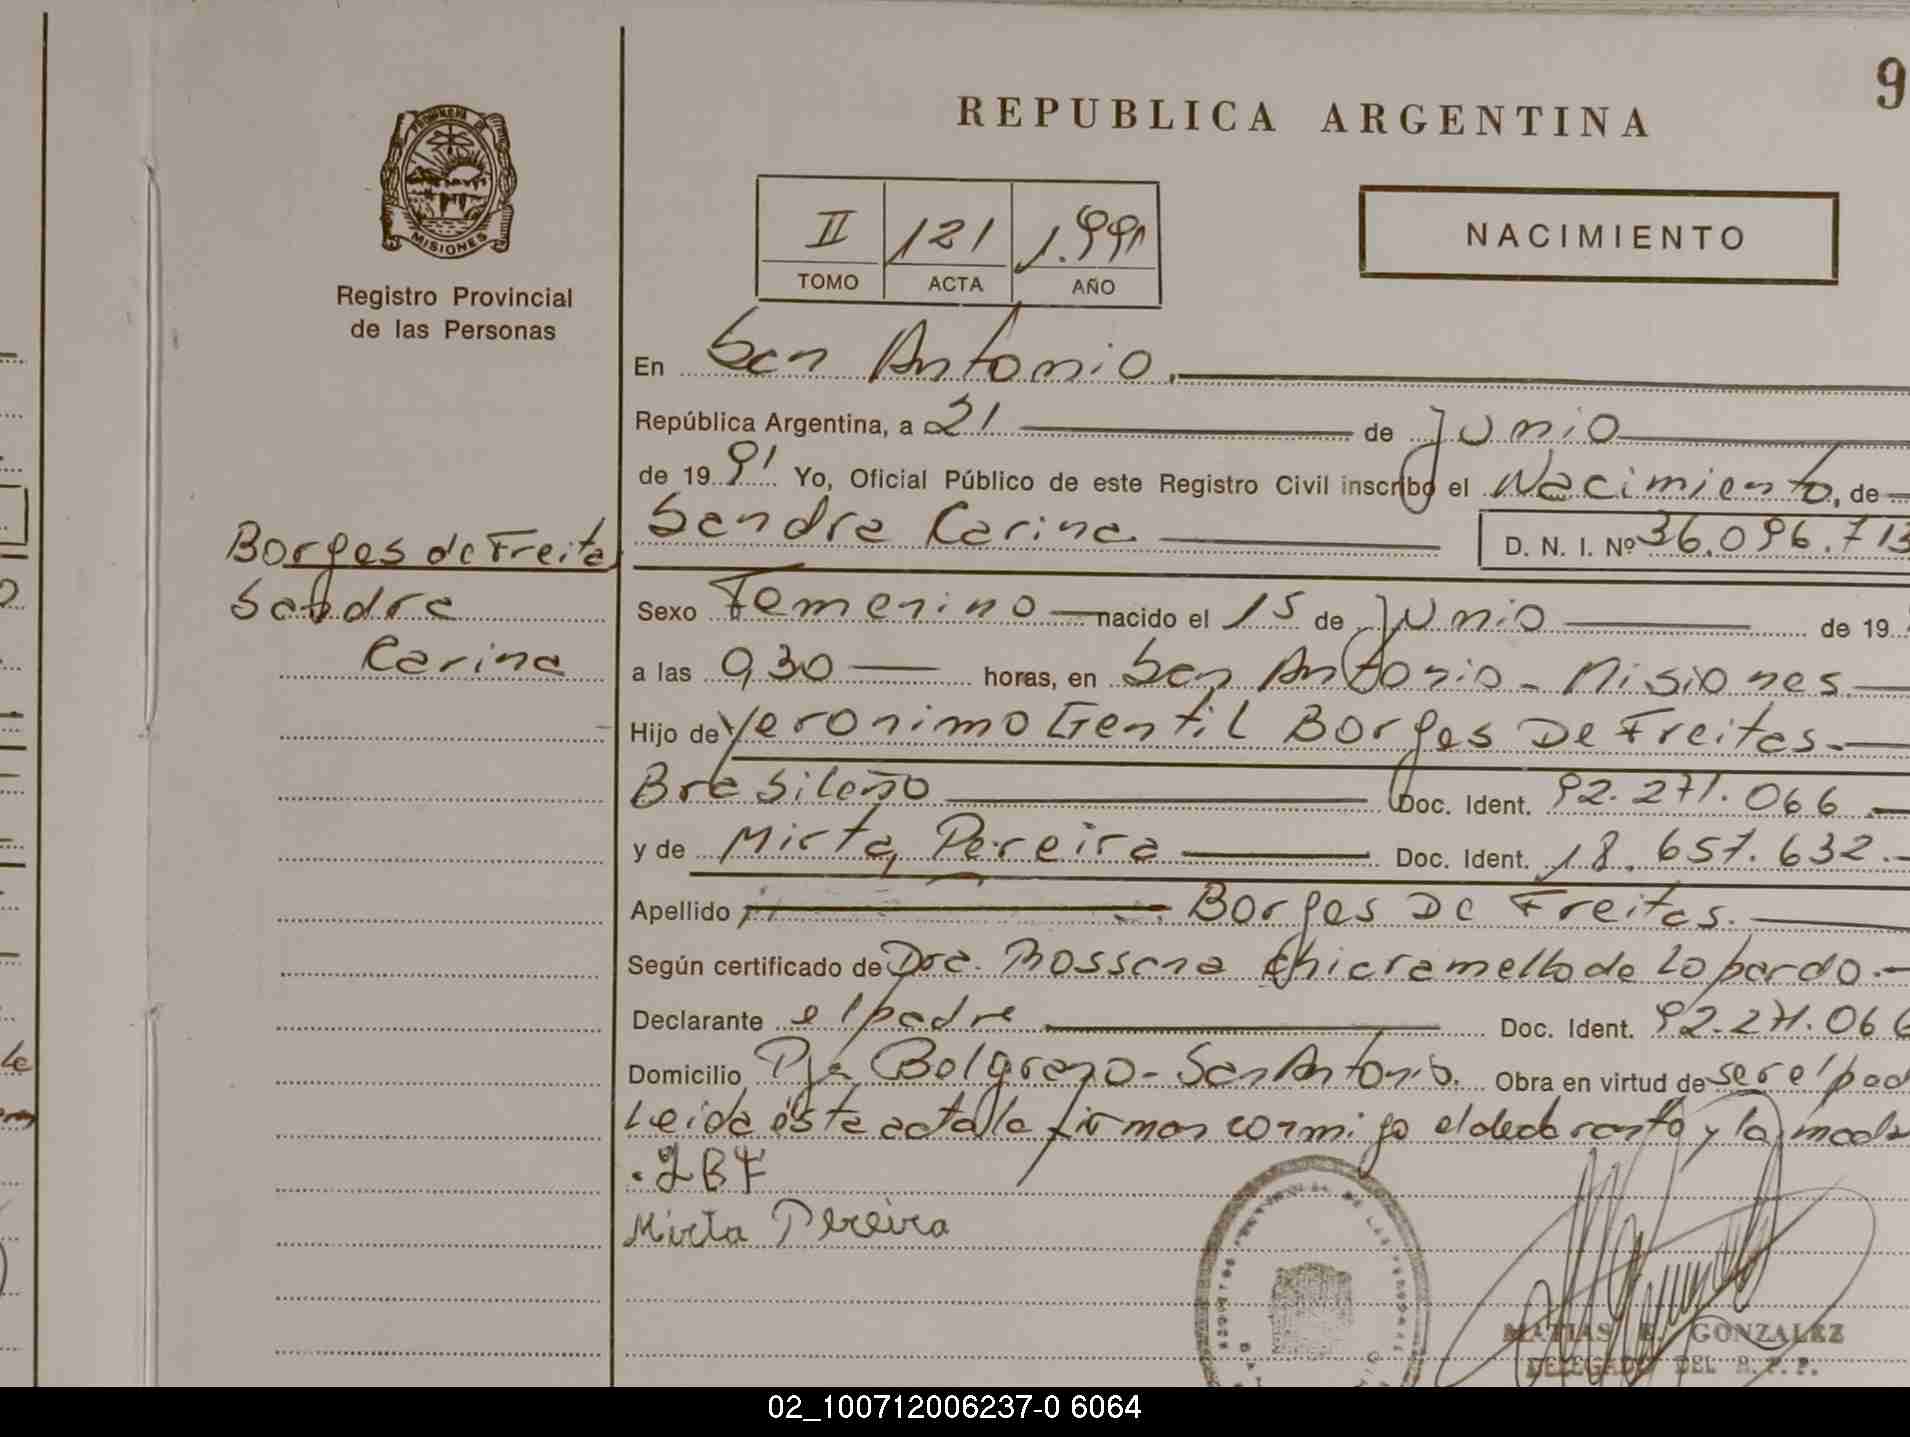 REPUBLICA ARGENTINA
9
PROVINCIA DE
MISIONES
Registro Provincial
de las Personas
II 121 1.991
TOMO ACTA AÑO
NACIMIENTO
En San Antonio.
República Argentina, a 21 de Junio
de 1991 Yo, Oficial Público de este Registro Civil inscribo el Nacimiento, de
Sandra Carina D. N. I. Nº 36.096.713
Borges de Freita
Sandra
Carina
Sexo Femenino nacido el 15 de Junio de 19
a las 9,30 horas, en San Antonio - Misiones.
Hijo de Yeronimo Gentil Borges De Freitas.
Brasileño Doc. Ident. 92.271.066
y de Mirta Pereira Doc. Ident. 18.657.632.
Apellido Borges De Freitas.
Según certificado de Dra. Rossana Chiaramello de Lopardo.
Declarante el padre Doc. Ident. 92.271.066
Domicilio Pje Belgrano - San Antonio. Obra en virtud de ser el pad
Leida ésta acta la firman conmigo el declarante y la mad
JBF
Mirta Pereira
MATIAS E. GONZALEZ
DELEGADO DEL R. P. P.
02_100712006237-0 6064